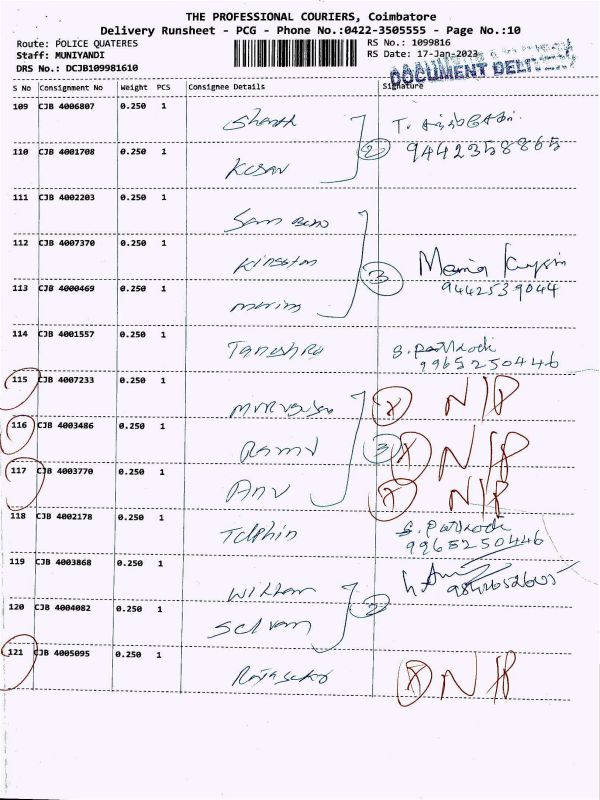 THE PROFESSIONAL COURIERS, Coimbatore
Delivery Runsheet - PCG - Phone No.:0422-3505555 - Page No.:10
Route: POLICE QUATERES
RS No.: 1099816
Staff: MUNIYANDI
RS Date: 17-Jan-2023
DRS No.: DCJB109981610
DOCUMENT DELIVERY
S No Consignment No Weight PCS Consignee Details Signature
109 CJB 4006807 0.250 1
9442358865
110 CJB 4001708 0.250 1 Kesav
2
111 CJB 4002203 0.250 1
112 CJB 4007370 0.250 1 Kingston
3
113 CJB 4000469 0.250 1
9442539044
114 CJB 4001557 0.250 1 Tanushra
9965250446
115 CJB 4007233 0.250 1 Murugan X N/P
116 CJB 4003486 0.250 1 Ramu 3 X N/P
117 CJB 4003770 0.250 1 Anu X N/P
118 CJB 4002178 0.250 1 Telphin
9965250446
119 CJB 4003868 0.250 1 William
2
120 CJB 4004082 0.250 1 Selvam
121 CJB 4005095 0.250 1 X N/P